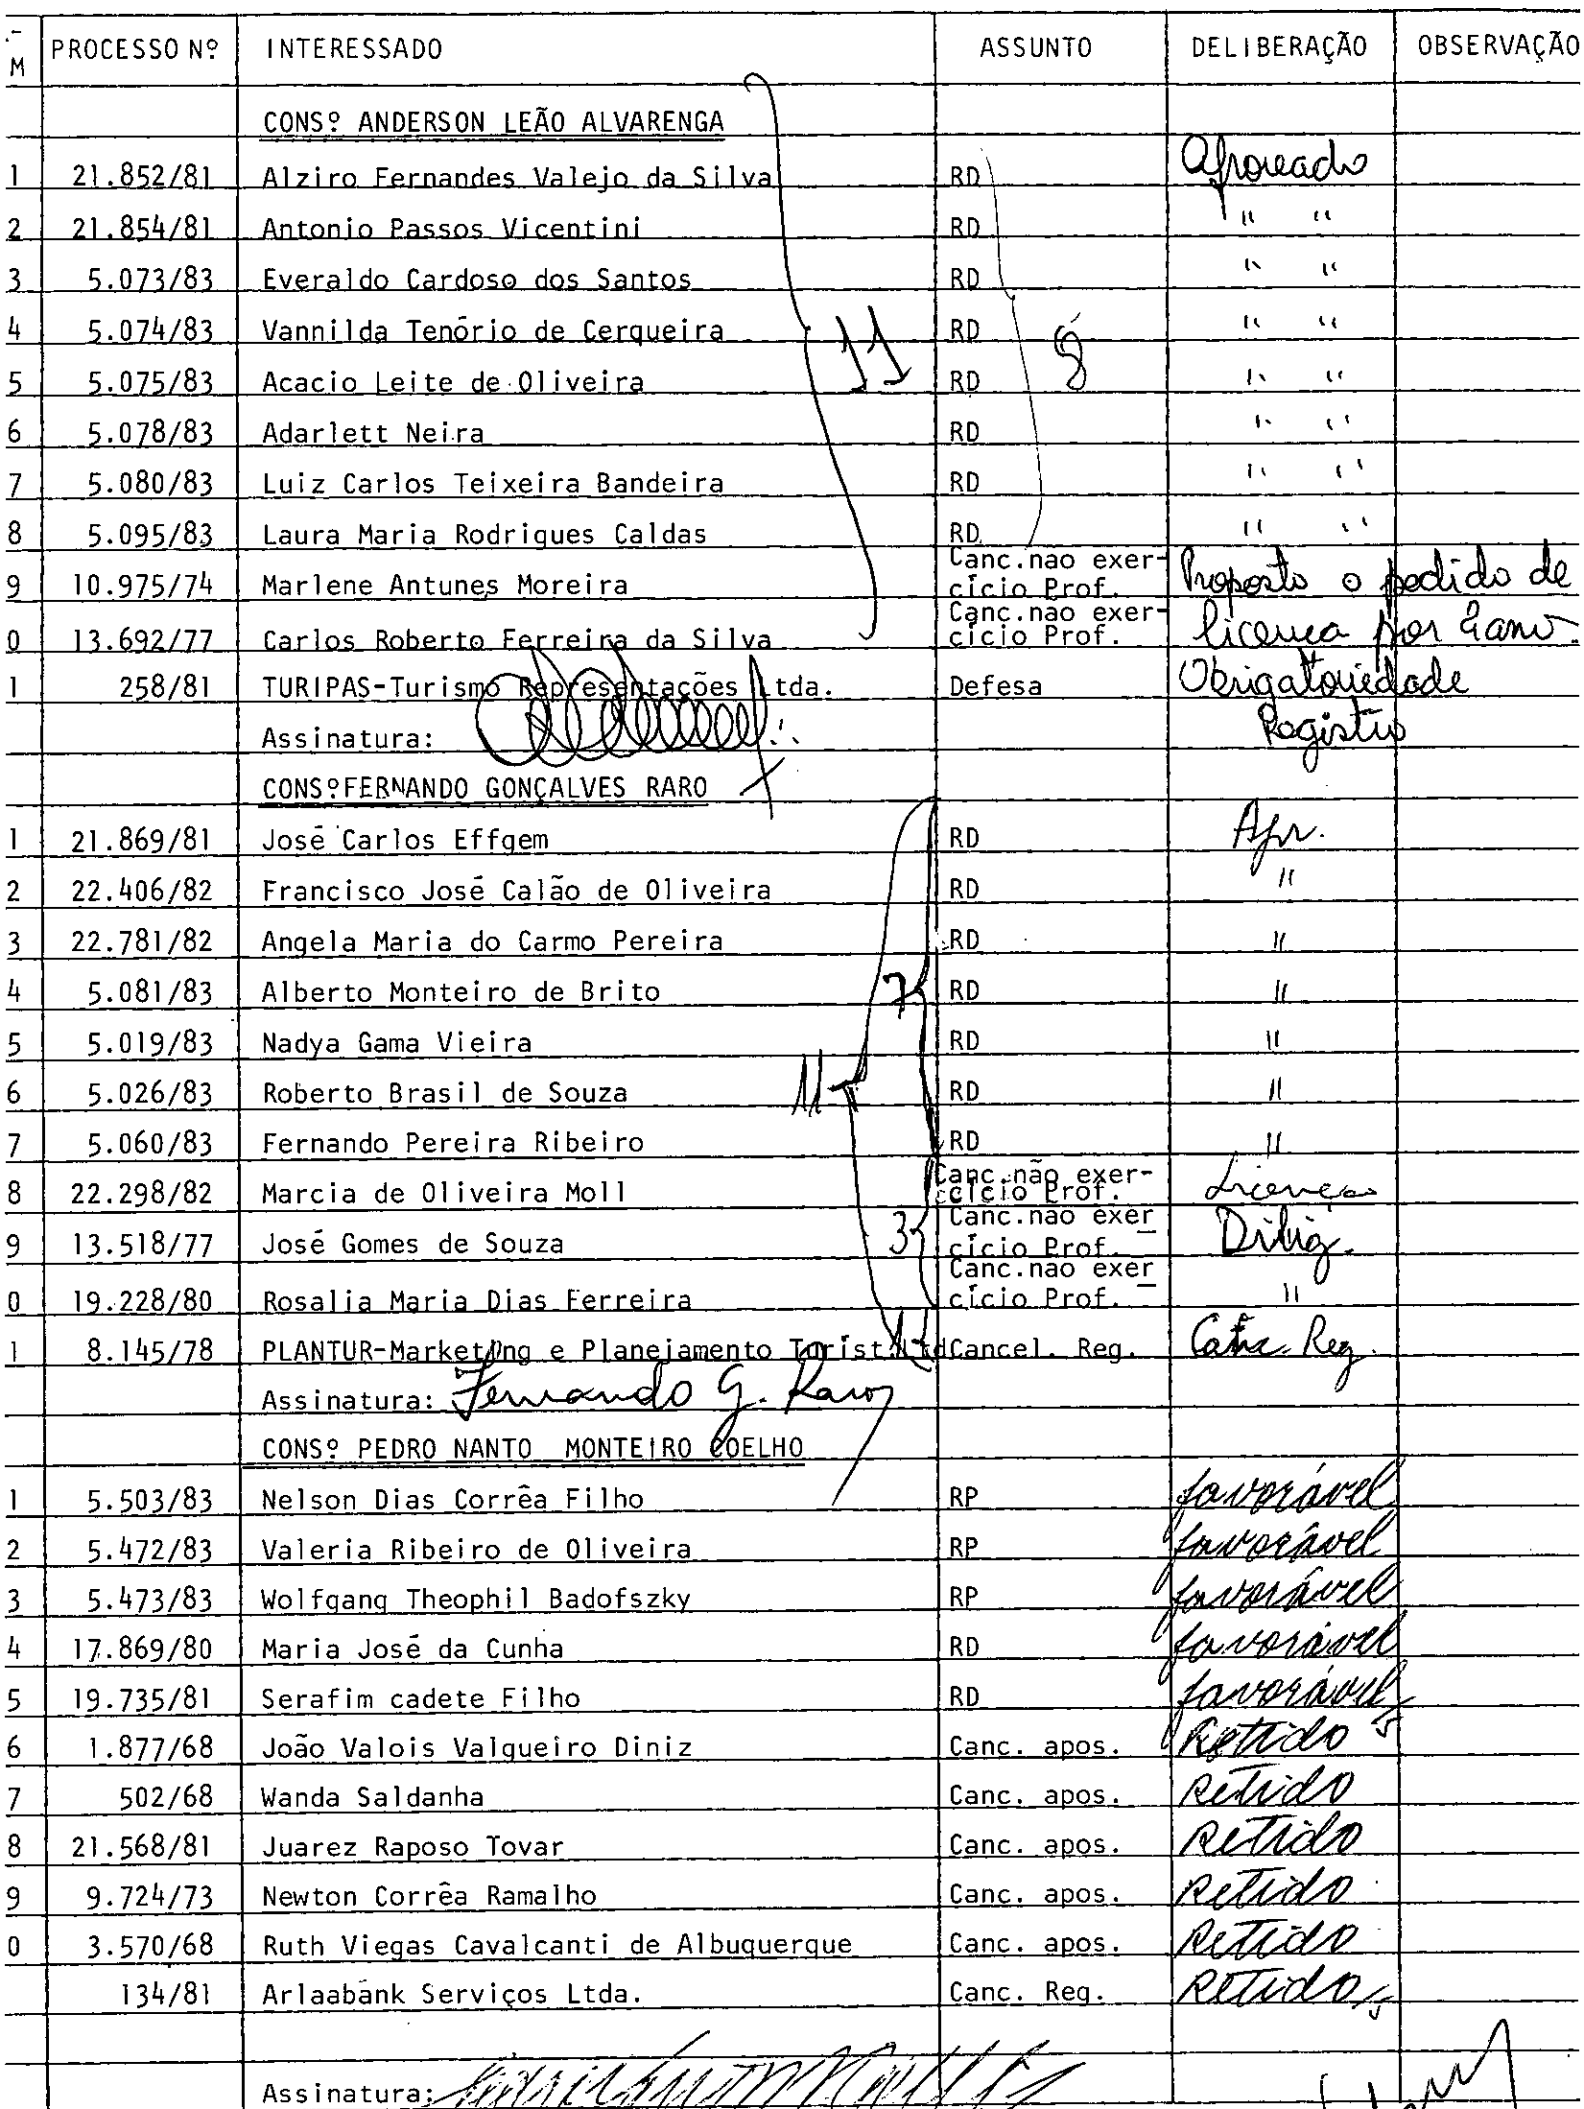 .-
M PROCESSO Nº INTERESSADO ASSUNTO DELIBERAÇÃO OBSERVAÇÃO
CONSº ANDERSON LEÃO ALVARENGA
1 21.852/81 Alziro Fernandes Valejo da Silva RD Aprovado
2 21.854/81 Antonio Passos Vicentini RD " "
3 5.073/83 Everaldo Cardoso dos Santos RD " "
4 5.074/83 Vannilda Tenório de Cerqueira 11 RD 8 " "
5 5.075/83 Acacio Leite de Oliveira RD " "
6 5.078/83 Adarlett Neira RD " "
7 5.080/83 Luiz Carlos Teixeira Bandeira RD " "
8 5.095/83 Laura Maria Rodrigues Caldas RD " "
9 10.975/74 Marlene Antunes Moreira Canc.nao exer-
cício Prof. Proposto o pedido de
0 13.692/77 Carlos Roberto Ferreira da Silva Canc.nao exer-
cício Prof. licença por 2 ano.
1 258/81 TURIPAS-Turismo Representações Ltda. Defesa Obrigatoriedade
Assinatura: Registro
CONSºFERNANDO GONÇALVES RARO
1 21.869/81 José Carlos Effgem RD Apr.
2 22.406/82 Francisco José Calão de Oliveira RD "
3 22.781/82 Angela Maria do Carmo Pereira RD "
4 5.081/83 Alberto Monteiro de Brito 7 RD "
5 5.019/83 Nadya Gama Vieira RD "
6 5.026/83 Roberto Brasil de Souza 11 RD "
7 5.060/83 Fernando Pereira Ribeiro RD "
8 22.298/82 Marcia de Oliveira Moll Canc.não exer-
cício Prof. Licença
9 13.518/77 José Gomes de Souza 3 Canc.nao exer
cício Prof. - Dilig.
0 19.228/80 Rosalia Maria Dias Ferreira Canc.nao exer
cício Prof. - "
1 8.145/78 PLANTUR-Marketing e Planejamento Turist. Ltd Cancel. Reg. Canc. Reg.
Assinatura: Fernando G. Raro
CONSº PEDRO NANTO MONTEIRO COELHO
1 5.503/83 Nelson Dias Corrêa Filho RP favorável
2 5.472/83 Valeria Ribeiro de Oliveira RP favorável
3 5.473/83 Wolfgang Theophil Badofszky RP favorável
4 17.869/80 Maria José da Cunha RD favorável
5 19.735/81 Serafim cadete Filho RD favorável
6 1.877/68 João Valois Valgueiro Diniz Canc. apos. Retido
7 502/68 Wanda Saldanha Canc. apos. Retido
8 21.568/81 Juarez Raposo Tovar Canc. apos. Retido
9 9.724/73 Newton Corrêa Ramalho Canc. apos. Retido
0 3.570/68 Ruth Viegas Cavalcanti de Albuquerque Canc. apos. Retido
134/81 Arlaabank Serviços Ltda. Canc. Reg. Retido
Assinatura: